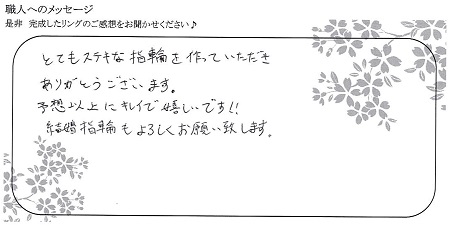 職人へのメッセージ
是非 完成したリングのご感想をお聞かせください♪
とてもステキな指輪を作っていただき
ありがとうございます。
予想以上にキレイで嬉しいです!!
結婚指輪もよろしくお願い致します。